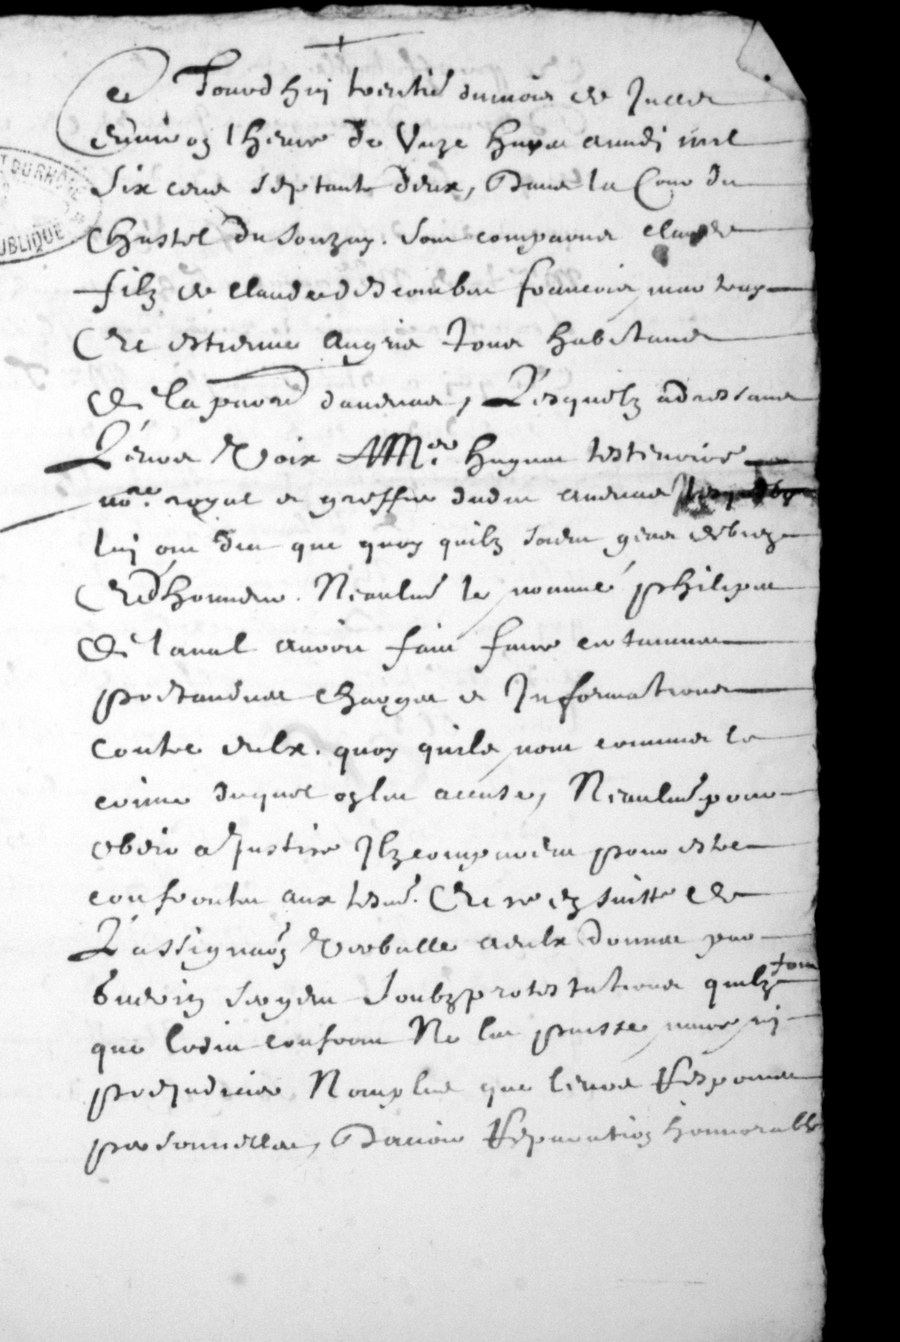 DU RHÔNE
PUBLIQUE
Ce Jourdhuy trentie du mois de Juillet
environ lheure de unze heures avant midi mil
six cens septante deux, Dans la Cour du
Chastel du Souzy. sont comparus claude
filz de claude descombes francois
Et estienne augris tous habitans
De la parroe daveize, Lesquelz adressans
Leurs Voix A Me hugues
nore. royal et greffier dudit aveize
luy ont dit que quoy quilz soient gens de bien
Et dhonneur. Neaulmt le nommé philipes
De laval avoir fait faire certaines
pretandues charges et Informations
contre eulx. quoy quils nont commis le
crime duquel on les accuse, Neaulmt pour
obeir a Justice Ilz comparoissent pour estre
confrontes aux tesmt. Et ce en suitte de
Lassignaon Verballe a eulx donnee par
sergent soubz protestations quilz font
que ledit confront Ne leur puisse nuire ny
prejudicier Non plus que leurs Responses
personnelles, Davoir Reparation honnorable